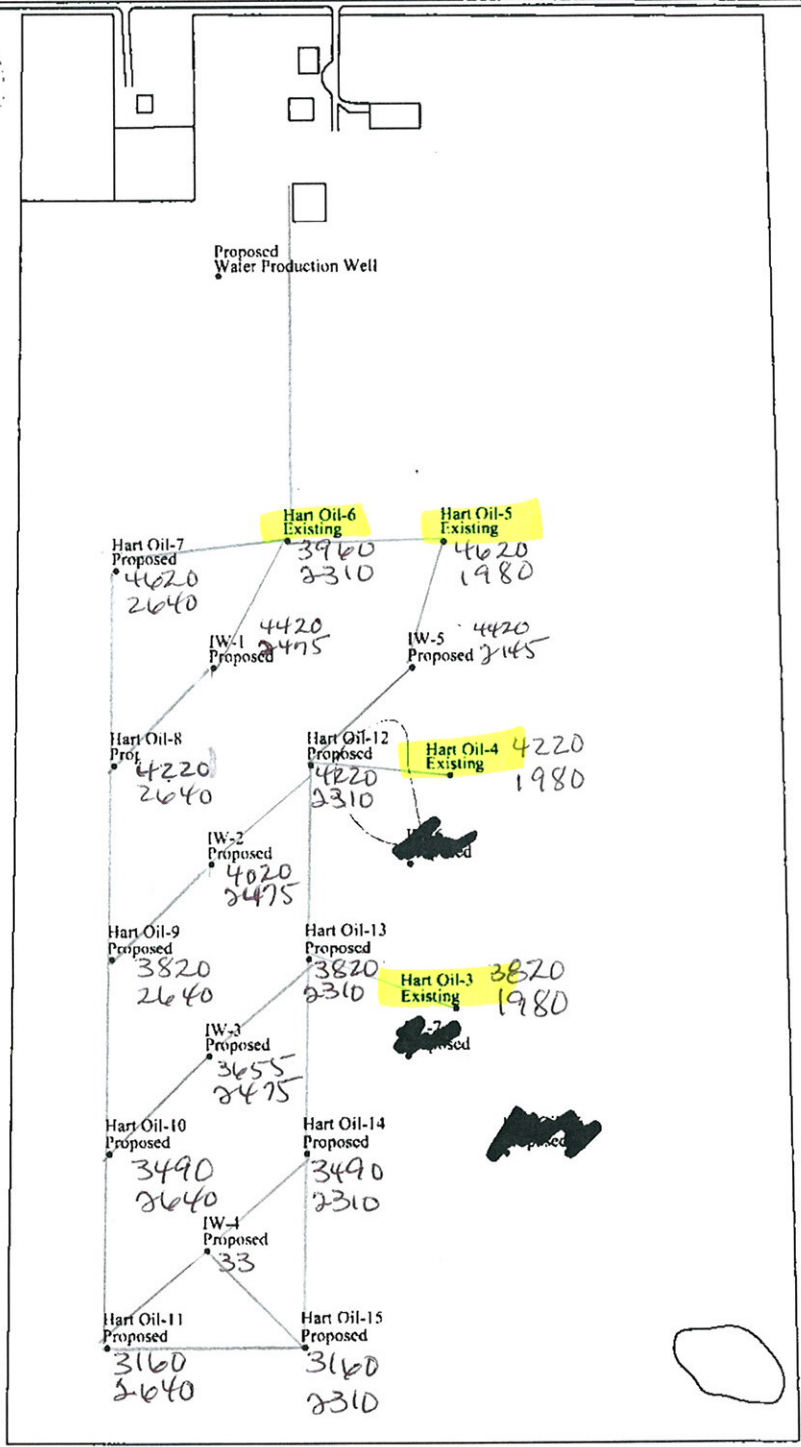 Proposed
Water Production Well
Hart Oil-6
Existing
3960
2310
Hart Oil-5
Existing
4620
1980
Hart Oil-7
Proposed
4620
2640
IW-1
Proposed
4420
2475
IW-5
Proposed
4420
2145
Hart Oil-8
4220
2640
Hart Oil-12
Proposed
4220
2310
Hart Oil-4
Existing
4220
1980
IW-2
Proposed
4020
2475
Hart Oil-9
Proposed
3820
2640
Hart Oil-13
Proposed
3820
2310
Hart Oil-3
Existing
3820
1980
IW-3
Proposed
3655
2475
Hart Oil-10
Proposed
3490
2640
Hart Oil-14
Proposed
3490
2310
IW-4
Proposed
33
Hart Oil-11
Proposed
3160
2640
Hart Oil-15
Proposed
3160
2310